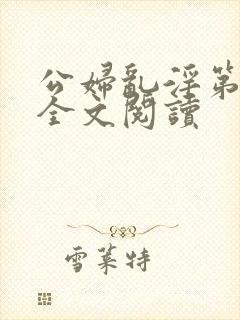 公婦亂淫第
全文閱讀
雪萊特